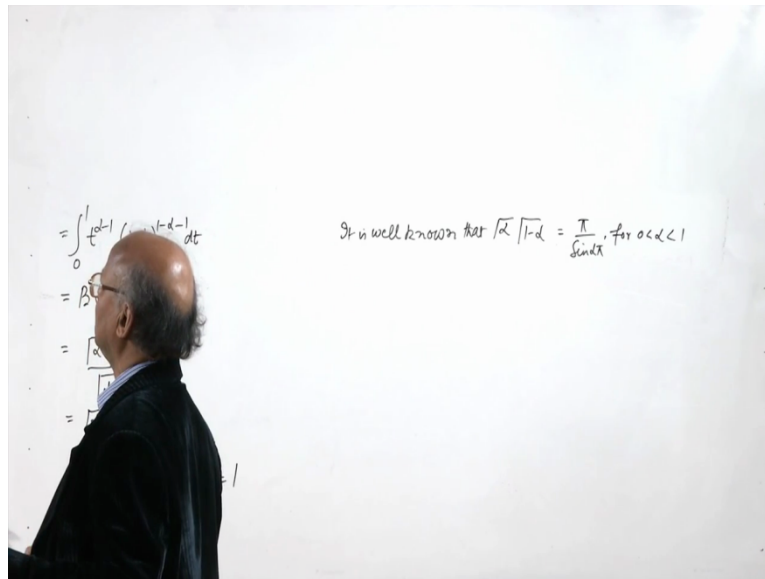 = ∫₀¹ t^{α-1} ( )^{1-α-1} dt
= B
= Γα
= Γ
= 1
It is well known that Γα Γ1-α = π/Sinαπ, for 0<α<1